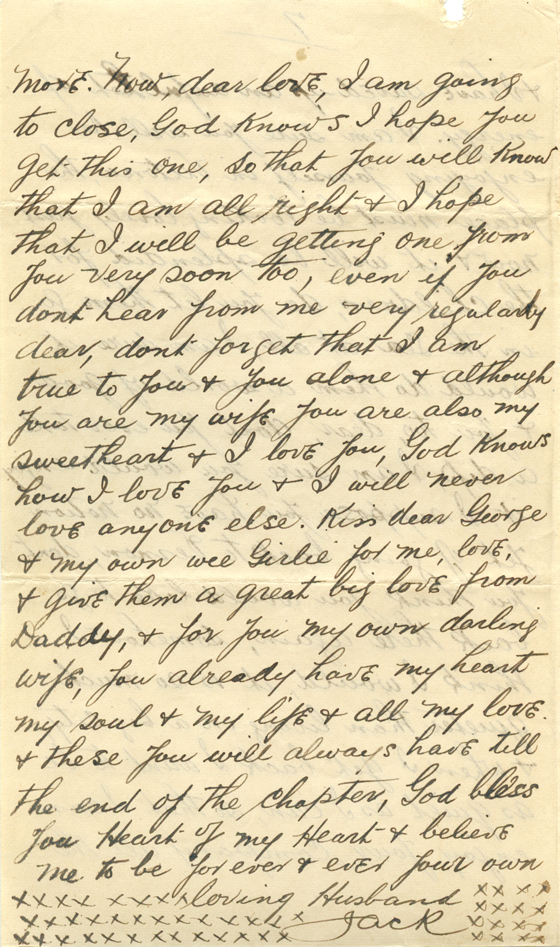 more. Now, dear love, I am going
to close, God Knows I hope you
get this one, so that you will Know
that I am all right & I hope
that I will be getting one from
you very soon too, even if you
dont hear from me very regularly
dear, dont forget that I am
true to you & you alone & although
you are my wife you are also my
sweetheart & I love you, God Knows
how I love you & I will never
love anyone else. Kiss dear George
& my own wee Girlie for me, love,
& give them a great big love from
Daddy, & for you my own darling
wife, you already have my heart
my soul & my life & all my love.
& these you will always have till
the end of the chapter, God bless
you Heart of my Heart & believe
me to be forever & ever your own
xxxx xxxx loving Husband xx xx
xxxxxxxxxxxxx Jack xxxx
xxxxxxxxxxxx xxxx